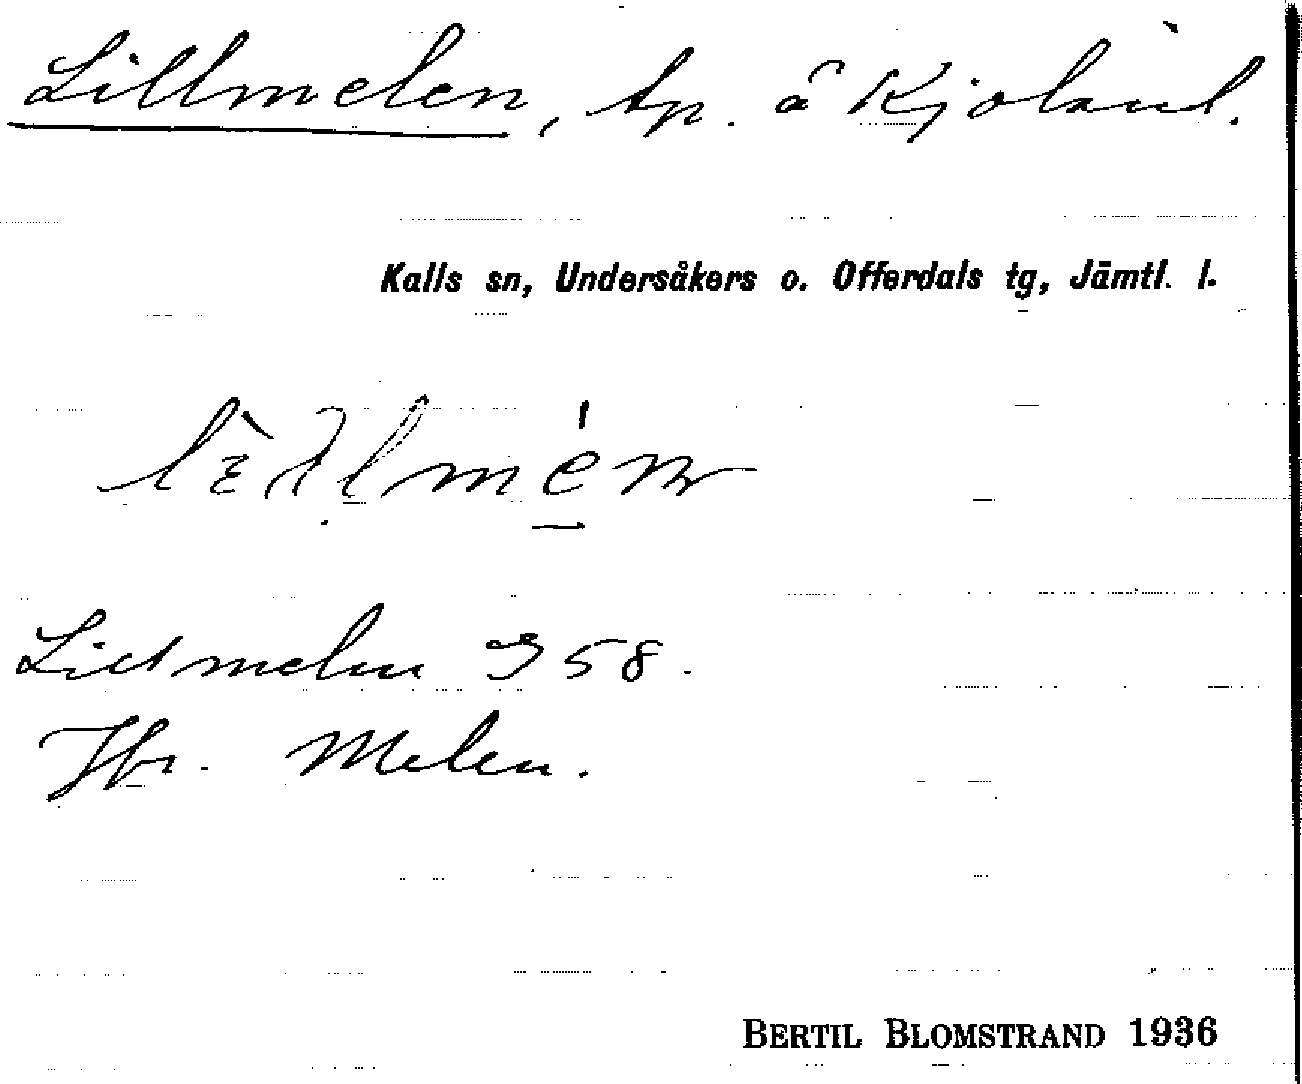 Lillmelen, tp. å Kjoland.
Kalls sn, Undersåkers o. Offerdals tg, Jämtl. l.
Lillmelen J 58.
Jfr. Melen.
BERTIL BLOMSTRAND 1936